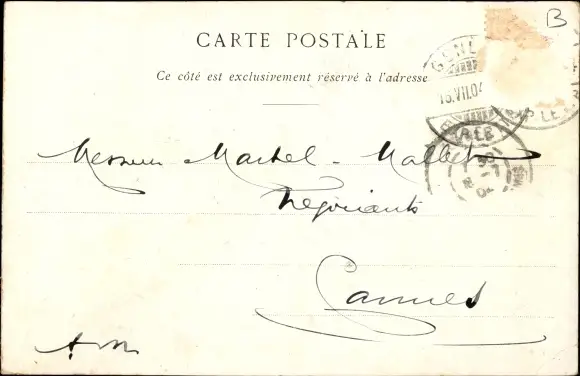 B
CARTE POSTALE
Ce côté est exclusivement réservé à l'adresse
15.VII.04
Messieurs Martel - Mallet
Négociants
Cannes
A.M.